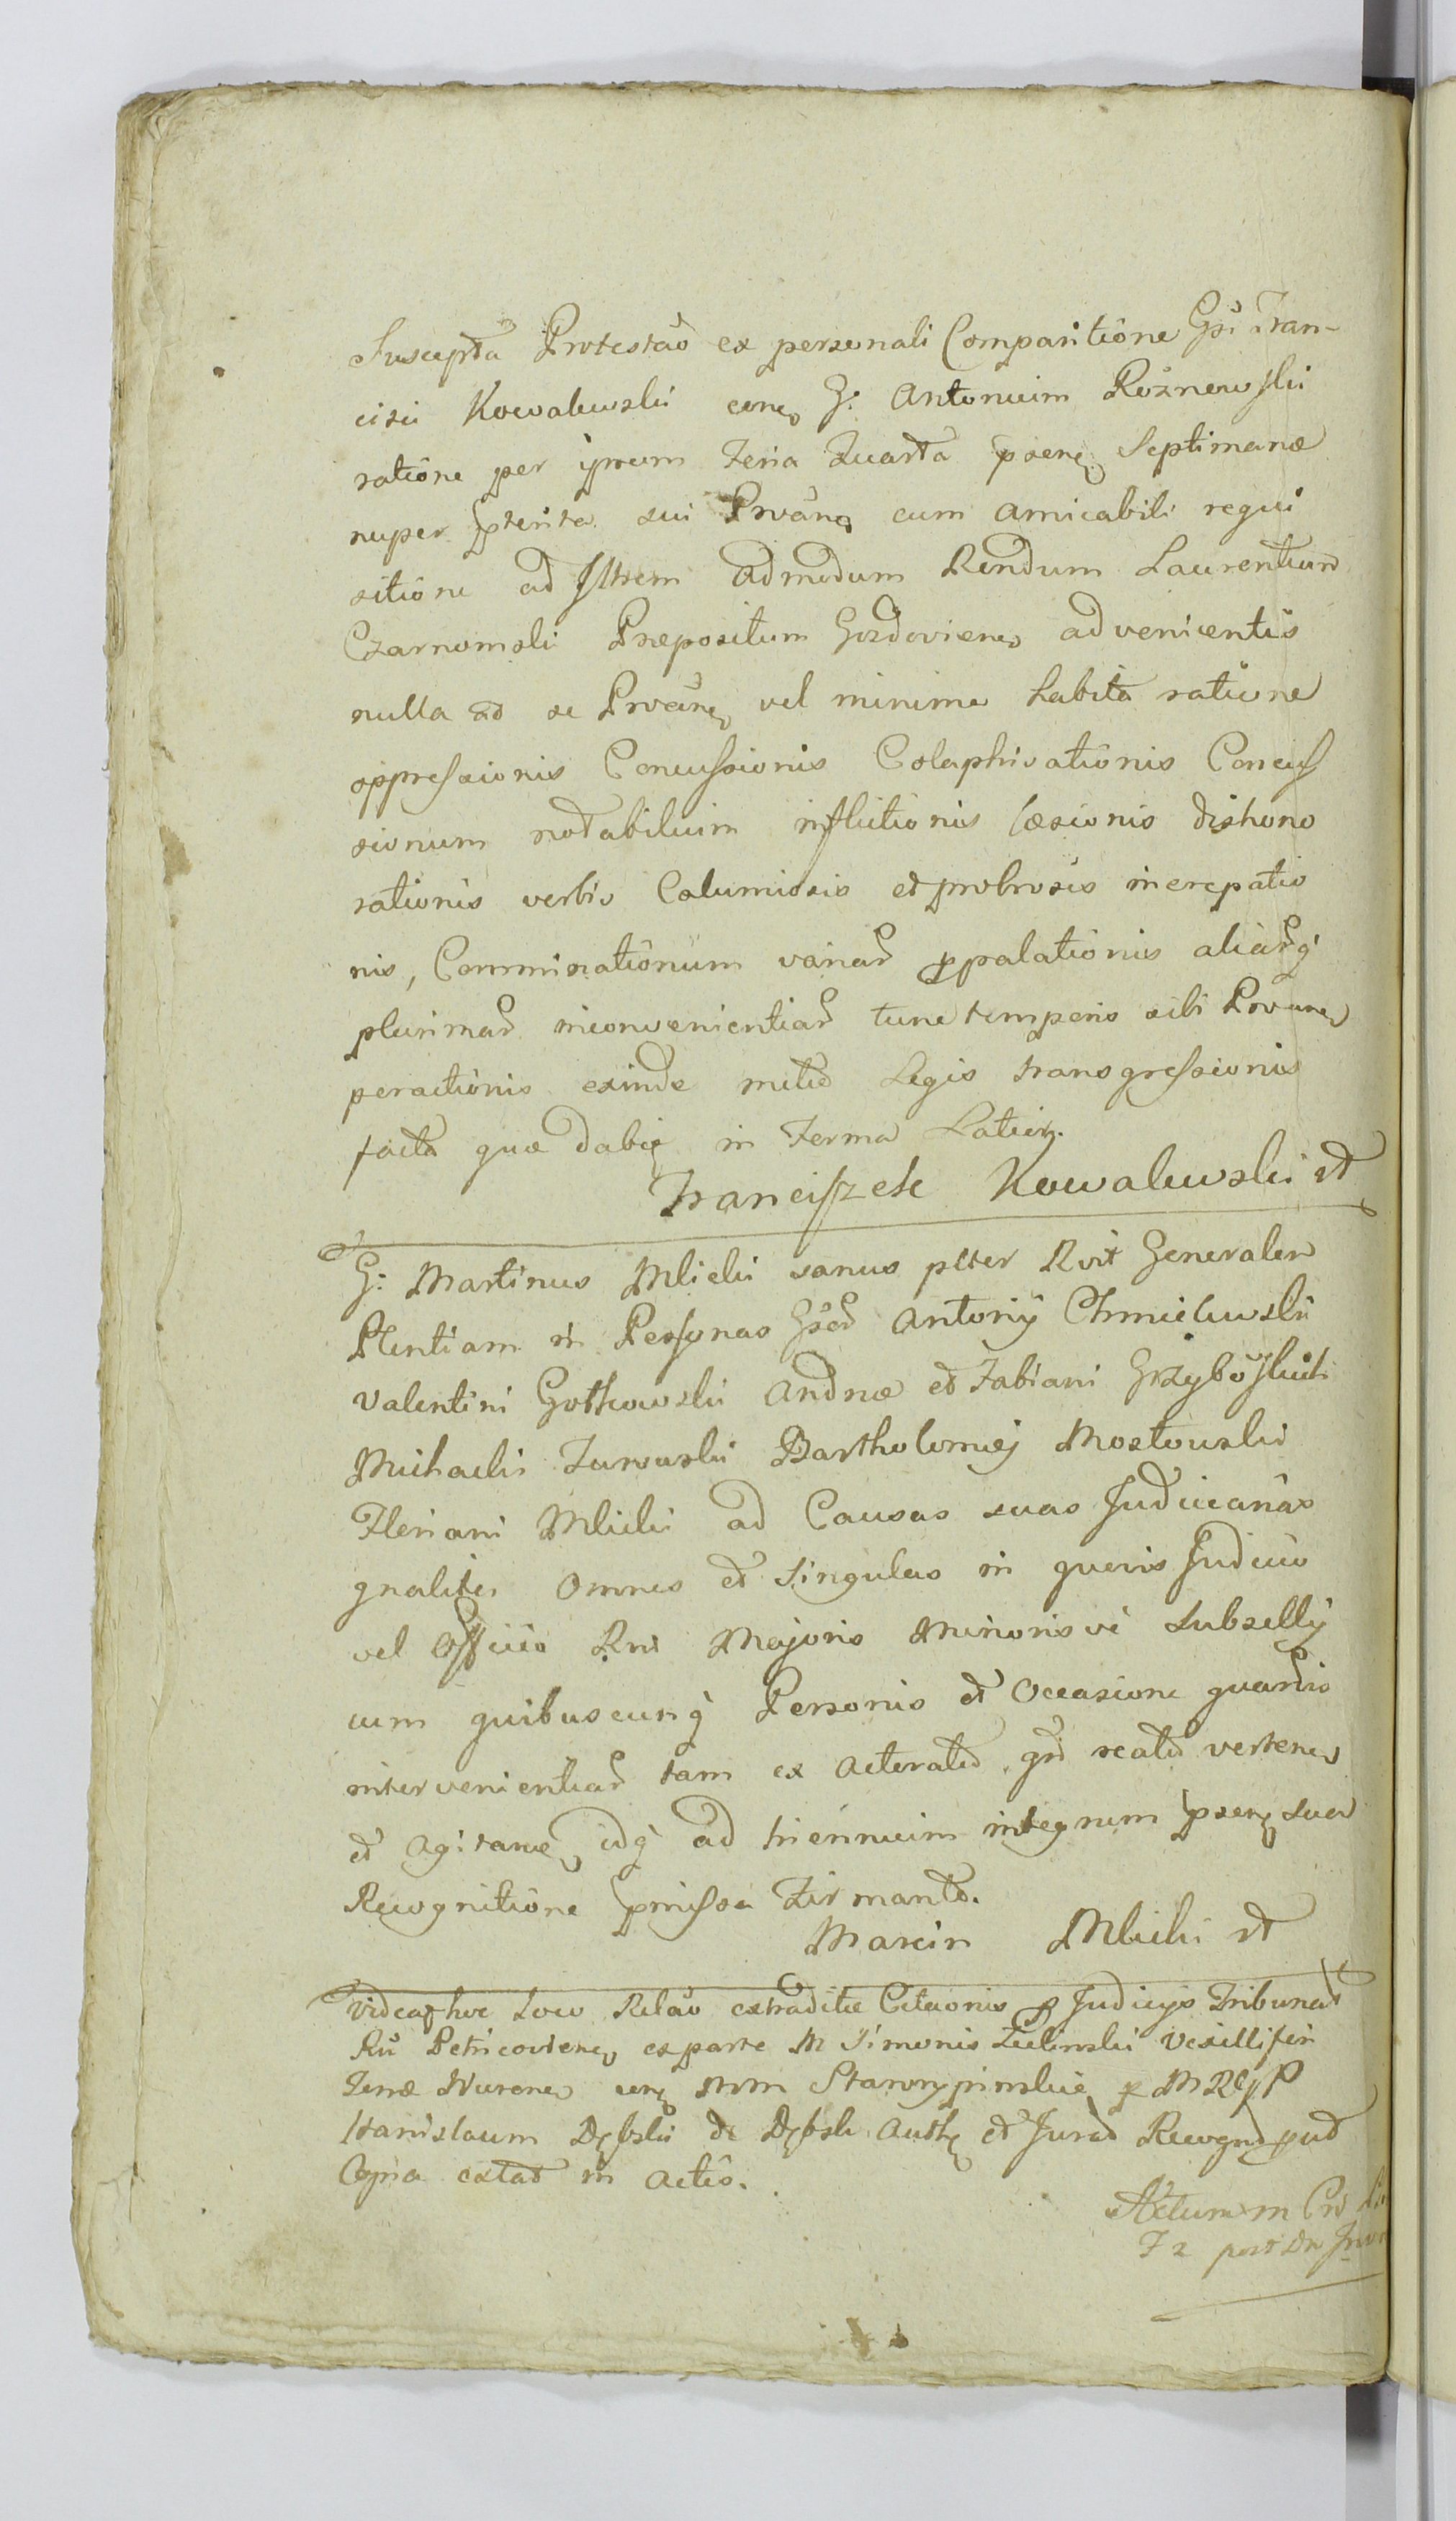 Suscepta Protestaõ ex personali Comparitione Gsi Fran-
cisci Kowalewski conę G: Antonium Rożnowski
ratione per ipsum Feria Quarta psenę Septimanæ
nuper pterita sui Prvãnę cum amicabili requi
sitione ad Illrem Admodum Rendum Laurentium
Czarnomski Præpositum Gozdoviens advenientis
nulla ad se Prvãnę vel minima habita ratione
oppressionis Concussionis Colaphisationis Concus
sionum notabilium inflictionis læsionis dishono
rationis verbis Calumiosis et probrosis increpatio
nis, Comminationum variar ppalationis aliarq
plurimar inconvenientiar tunc temporis sibi Prvanę
peractionis exinde Legis transgressionis
facta quæ dabiť in Forma Latiori.
Franciszek Kowalewski
G: Martinus Mlicki sanus plter Rvit Generalem
Plentiam in Personas Gsor Antonij Chmielewski
Valentini Gotkowski Andræ et Fabiani
Michaelis Bartholomej Mostowski
Floriani Mlicki ad Causas suas Judicianas
gnaliter Omnes et Singulas in quovis Judicio
vel Officio Rni Majoris Minorisve Subsellij
cum quibuscunq Personis et Occasione quarvis
intervenientiar tam ex Actoratu qm reatu vertenę
et Agitanę, idq ad triennium integrum psenę sua
Recognitione pmissa Firmanto.
Marcin Mlicki
Videať hoc Loco Relaõ extraditæ Citaonis p Judicijs Tribunał
Rni Petricoviens ex parte M Simonis Zielinski Vexilliferi
Terræ Wurenę M p
Stanislaum Dębski de Dębsk Recognd pud
Copia extat in Actis.
Actum in
F 2 post Dn